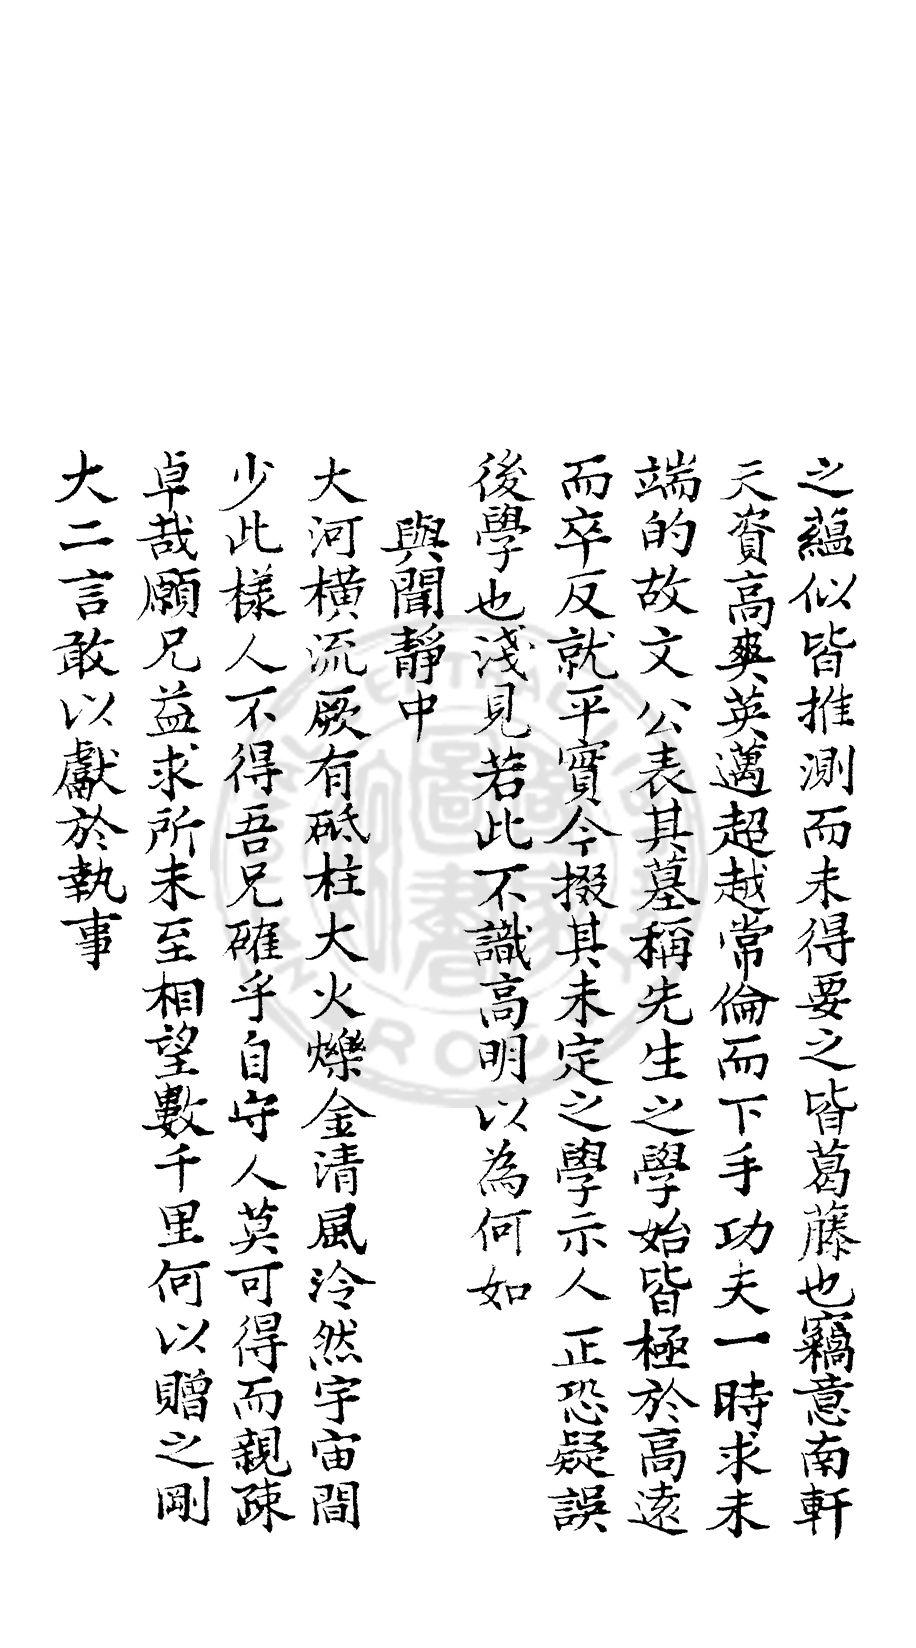 之蘊似皆推測而未得要之皆葛藤也竊意南軒
天資高爽英邁超越常倫而下手功夫一時求未
端的故文公表其墓稱先生之學始皆極於高遠
而卒反就平實今掇其未定之學示人正恐疑誤
後學也淺見若此不識高明以為何如
與聞靜中
大河橫流厥有砥柱大火爍金清風泠然宇宙間
少此樣人不得吾兄確乎自守人莫可得而親疎
卓哉願兄益求所未至相望數千里何以贈之剛
大二言敢以獻於執事